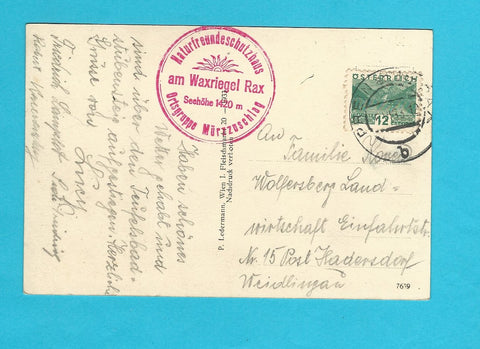 Naturfreundeschutzhaus
am Waxriegel Rax
Seehöhe 1420 m
Ortsgruppe Mürzzuschlag
ÖSTERREICH
12
b
Haben schönes
Wetter gehabt und
sind über den Teufelsbad-
stubensteig aufgestiegen. Herzliche
Grüße von
P. Ledermann, Wien I. Fleischmarkt 20
Nachdruck verboten
An
Familie
Wolfersberg Land-
wirtschaft Einfahrtstr.
Nr. 15 Post Hadersdorf
Weidlingau
7679